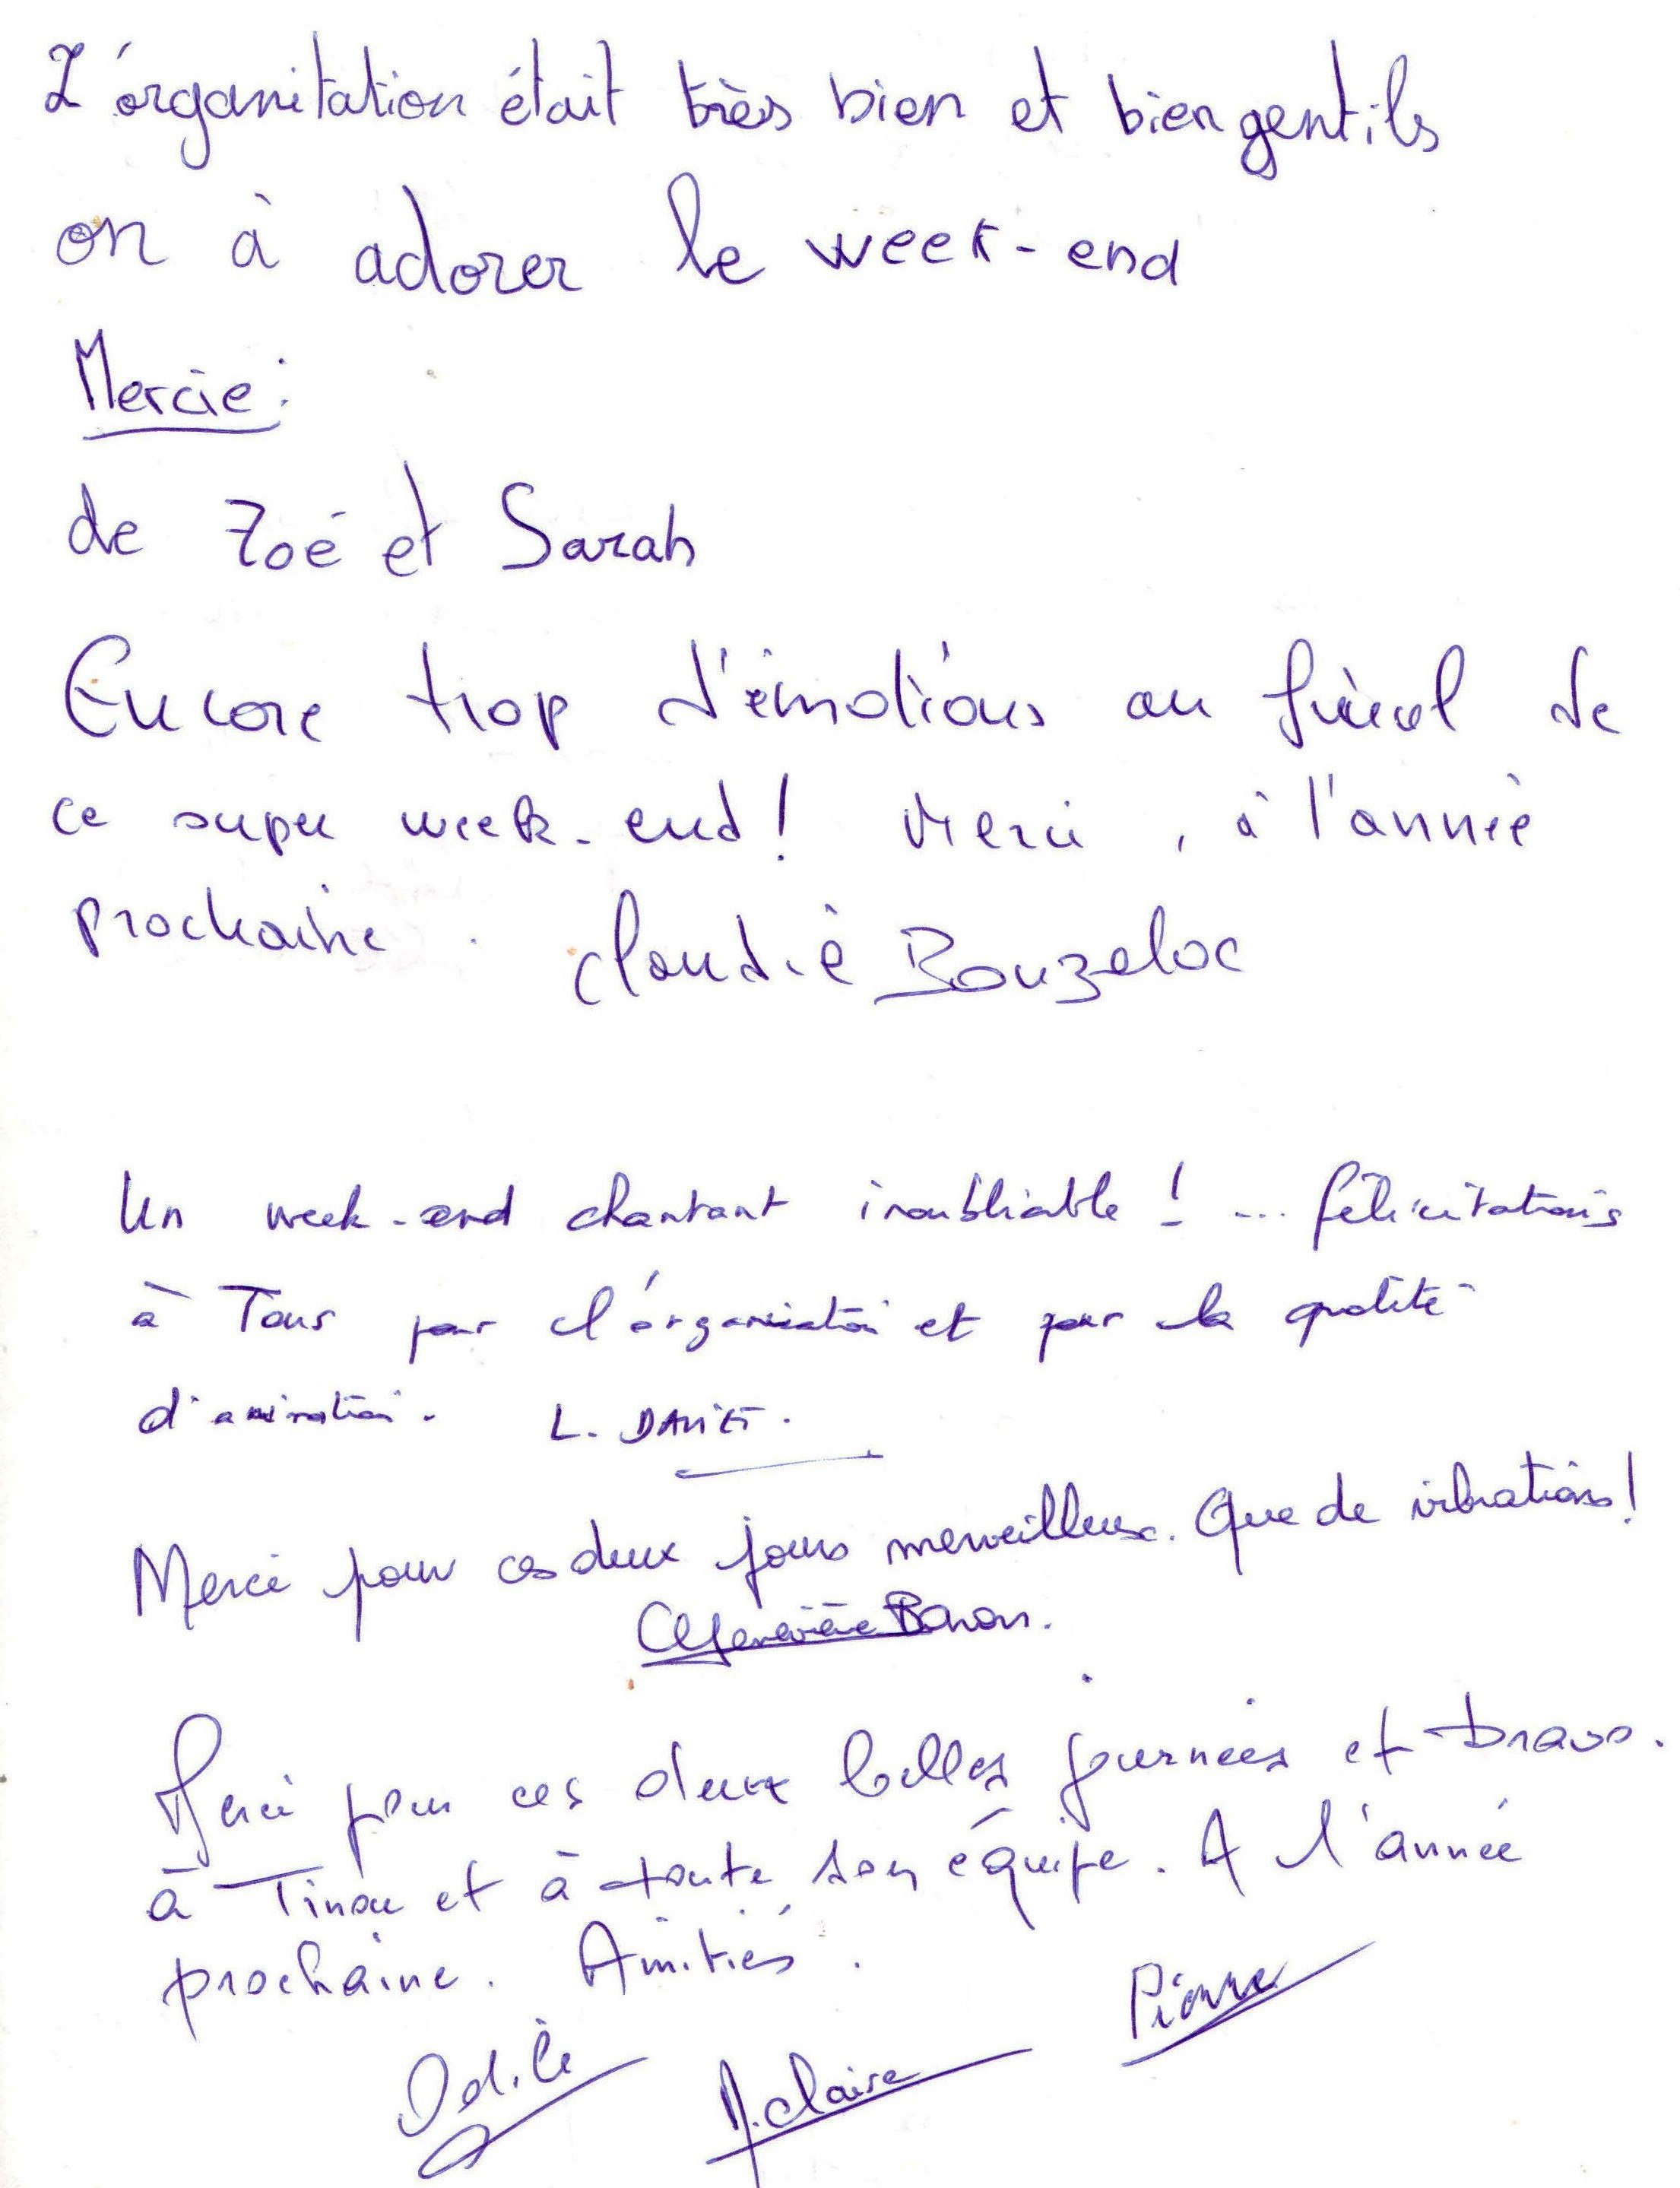 L'organitation était très bien et bien gentils
on à adorer le week-end
Mercie :
de Zoé et Sarah
Encore trop d'émotions au final de
ce super week-end ! Merci, à l'année
prochaine. Claudie Bouzeloc
Un week-end chantant inoubliable ! ... félicitations
à Tous pour l'organisation et pour la qualité
d'animation. L.
Merci pour ces deux jours merveilleux. Que de vibrations !
Geneviève Baron.
Merci pour ces deux belles journées et bravo.
à Tinou et à toute son équipe. A l'année
prochaine. Amitiés.
Pierre
Odile M.claire